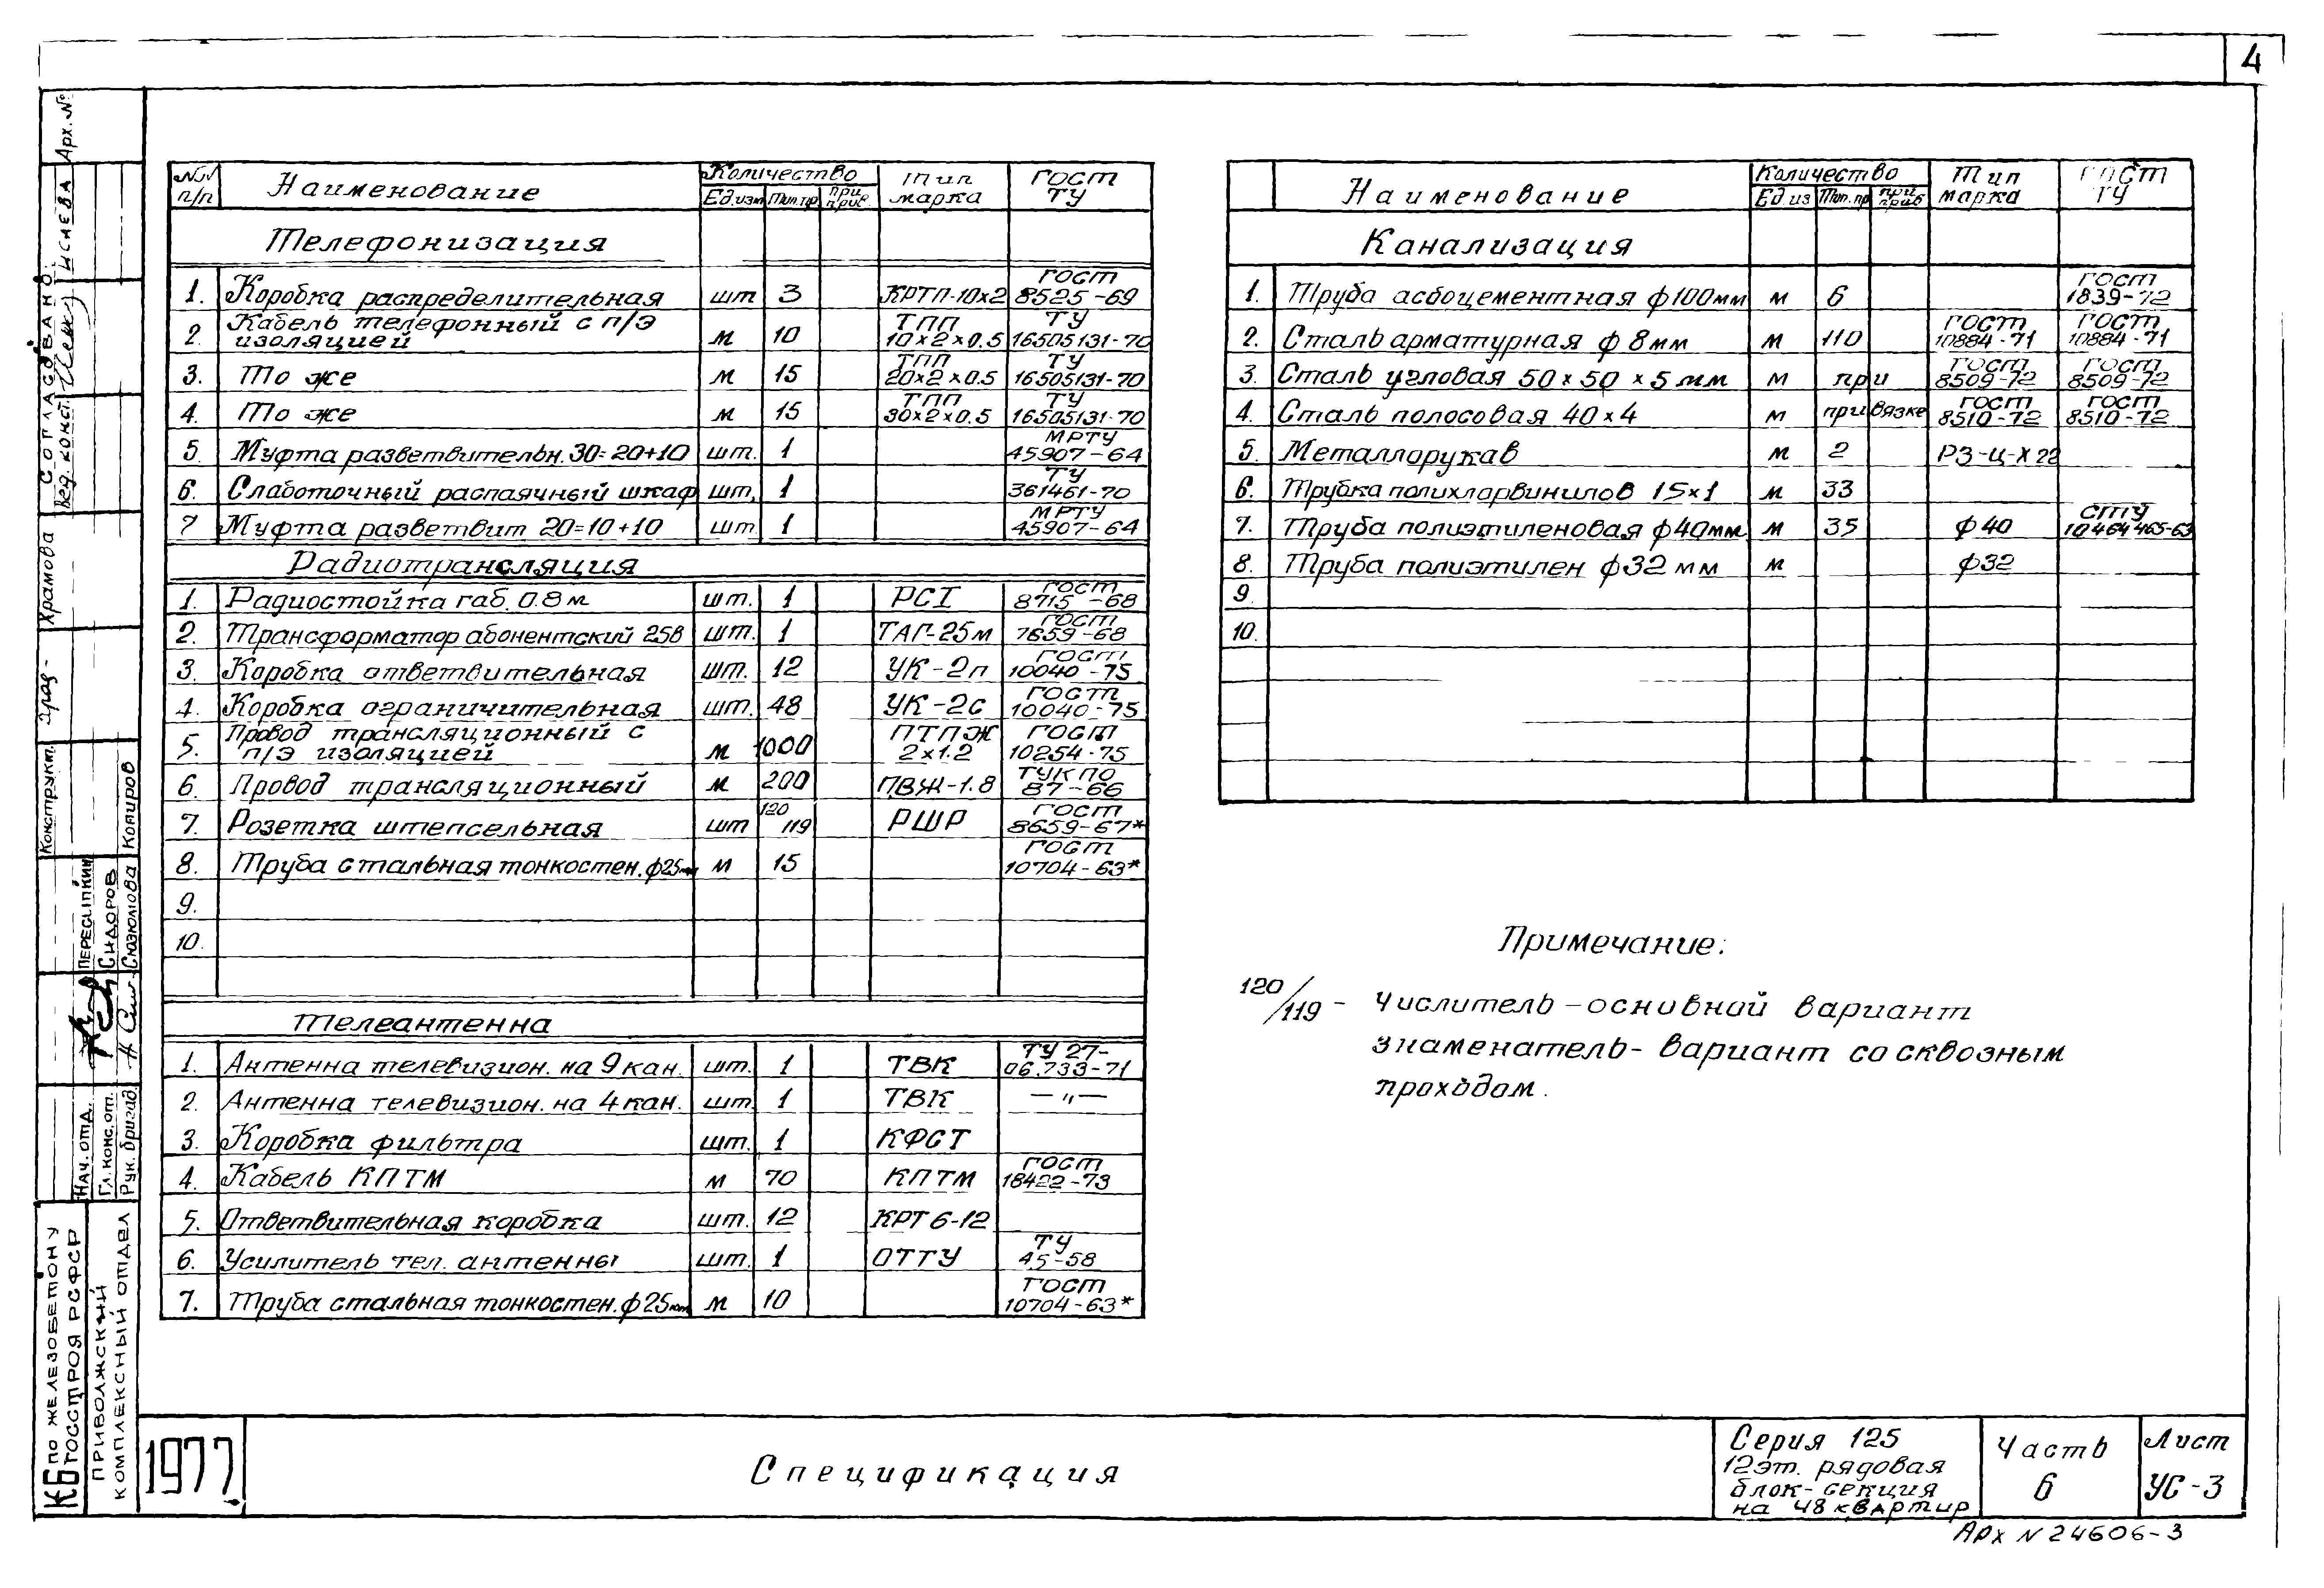 4
№№ п/п Наименование Количество Тип марка ГОСТ ТУ
Ед.изм Тип.пр при прив.
Телефонизация
1. Коробка распределительная шт 3 КРТП-10х2 ГОСТ 8525-69
2. Кабель телефонный с п/э изоляцией м 10 ТПП 10×2×0.5 ТУ 16505131-70
3. То же м 15 ТПП 20×2×0.5 ТУ 16505131-70
4. То же м 15 ТПП 30×2×0.5 ТУ 16505131-70
5. Муфта разветвительн. 30=20+10 шт. 1 МРТУ 45907-64
6. Слаботочный распаячный шкаф шт. 1 ТУ 361461-70
7 Муфта разветвит 20=10+10 шт 1 МРТУ 45907-64
Радиотрансляция
1. Радиостойка габ. 0.8м шт. 1 РСI ГОСТ 8715-68
2. Трансформатор абонентский 25в шт. 1 ТАГ-25м ГОСТ 7659-68
3. Коробка ответвительная шт. 12 УК-2п ГОСТ 10040-75
4. Коробка ограничительная шт. 48 УК-2с ГОСТ 10040-75
5. Провод трансляционный с п/э изоляцией м 1000 ПТПЖ 2×1.2 ГОСТ 10254-75
6. Провод трансляционный м 200 ПВЖ-1.8 ТУК ПО 87-66
7. Розетка штепсельная шт 120 119 РШР ГОСТ 8659-67*
8. Труба стальная тонкостен. ф25мм м 15 ГОСТ 10704-63*
9.
10.
Телеантенна
1. Антенна телевизион. на 9 кан. шт. 1 ТВК ТУ 27-06.733-71
2. Антенна телевизион. на 4 кан. шт. 1 ТВК —„—
3. Коробка фильтра шт. 1 КФСТ
4. Кабель КПТМ м 70 КПТМ ГОСТ 18422-73
5. Ответвительная коробка шт. 12 КРТ 6-12
6. Усилитель тел. антенны шт. 1 ОТТУ ТУ 45-58
7. Труба стальная тонкостен. ф25мм м 10 ГОСТ 10704-63*
Наименование Количество Тип марка ГОСТ ТУ
Ед.из Тип.пр при прив
Канализация
1. Труба асбоцементная ф100мм м 6 ГОСТ 1839-72
2. Сталь арматурная ф 8мм м 110 ГОСТ 10884-71 ГОСТ 10884-71
3. Сталь угловая 50×50×5мм м при ГОСТ 8509-72 ГОСТ 8509-72
4. Сталь полосовая 40×4 м привязке ГОСТ 8510-72 ГОСТ 8510-72
5. Металлорукав м 2 РЗ-Ц-Х 22
6. Трубка полихларвинилов 15×1 м 33
7. Труба полиэтиленовая ф40мм м 35 ф40 СТУ 10464465-63
8. Труба полиэтилен ф32мм м ф32
9.
10.
Примечание:
120/119 - Числитель - основной вариант
знаменатель - вариант со сквозным
проходом.
Арх.№
Согласовано:
Вед. конст. Исиева
Конструкт. Храмова
Копиров
Нач. отд. Пересыпкин
Гл. конс. от. Сидоров
Рук. бригад. Сизюмова
КБ по железобетону
Госстроя РСФСР
Приволжский
комплексный отдел
1977
Спецификация
Серия 125
12эт. рядовая
блок-секция
на 48 квартир
Часть
6
Лист
УС-3
Арх N 24606-3